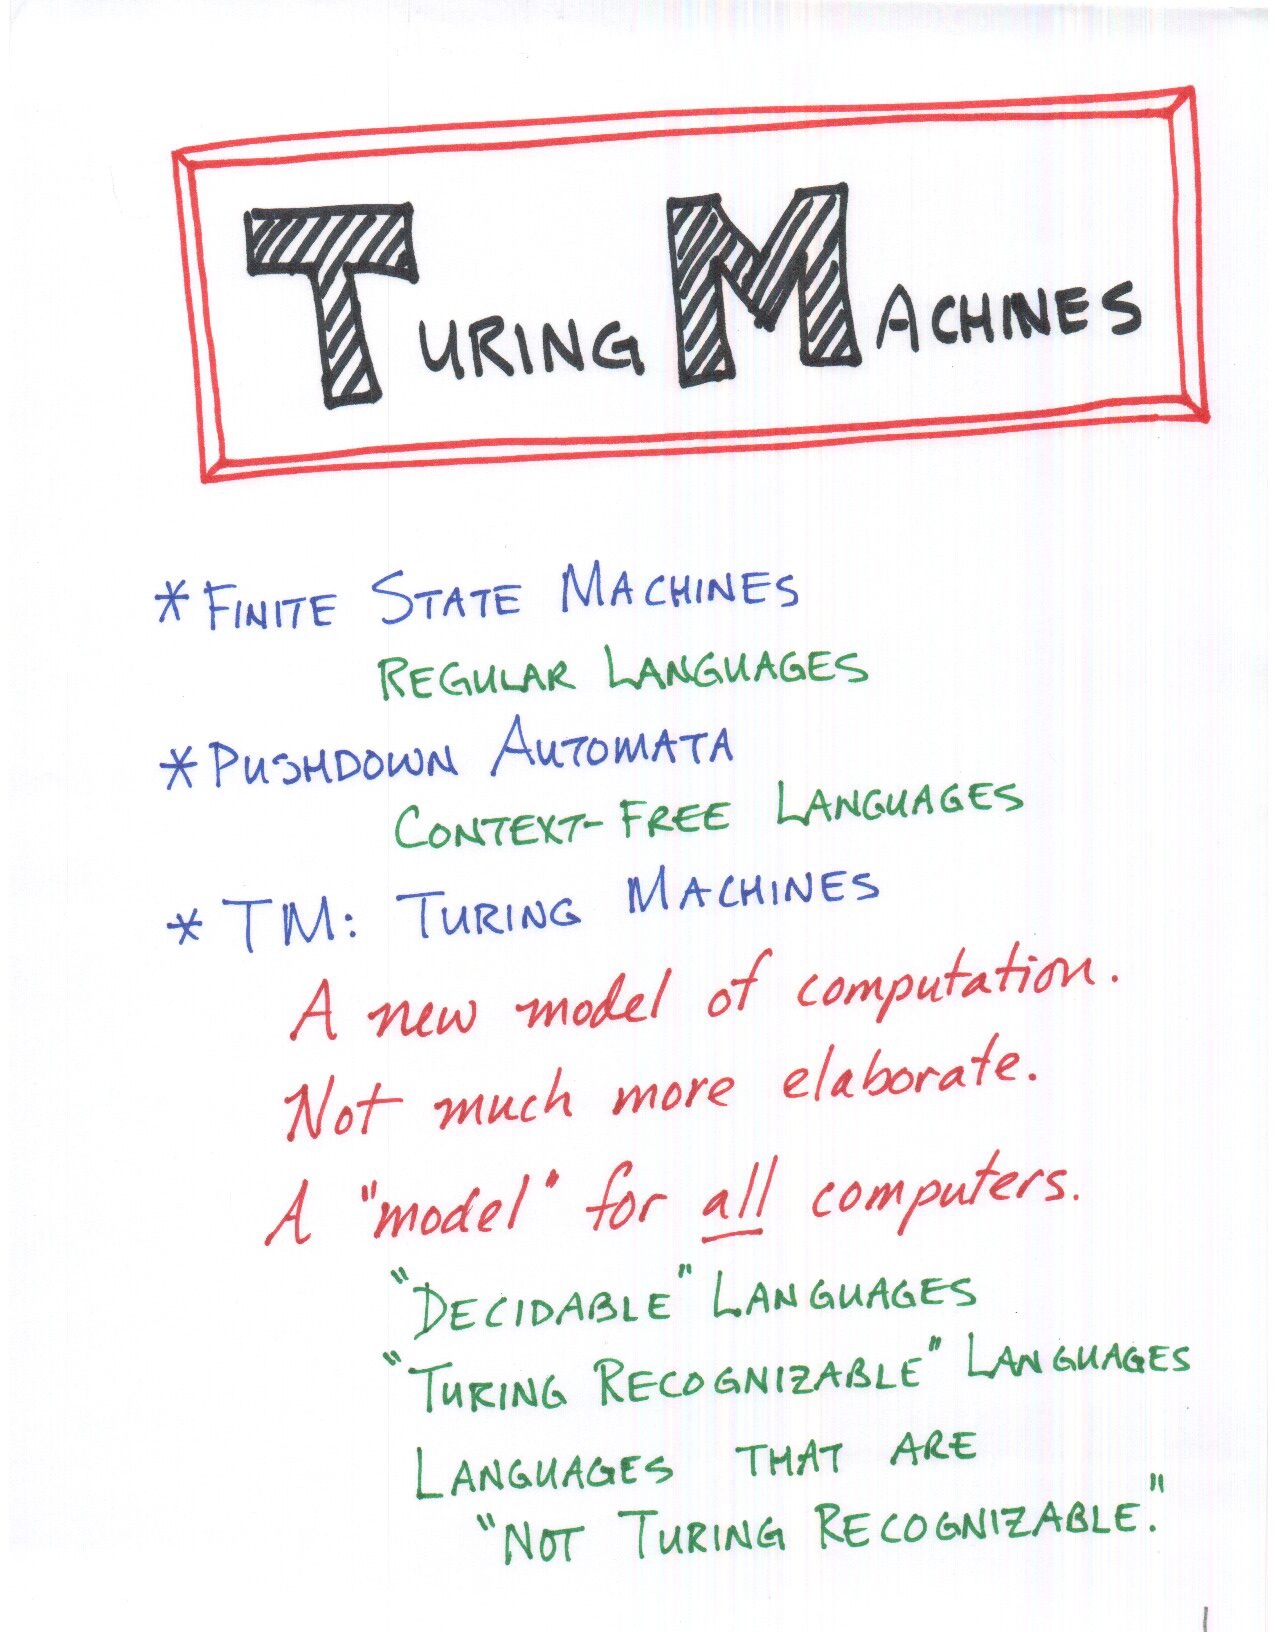 TURING MACHINES
* FINITE STATE MACHINES
REGULAR LANGUAGES
* PUSHDOWN AUTOMATA
CONTEXT-FREE LANGUAGES
* TM: TURING MACHINES
A new model of computation.
Not much more elaborate.
A "model" for all computers.
"DECIDABLE" LANGUAGES
"TURING RECOGNIZABLE" LANGUAGES
LANGUAGES THAT ARE
"NOT TURING RECOGNIZABLE."
1